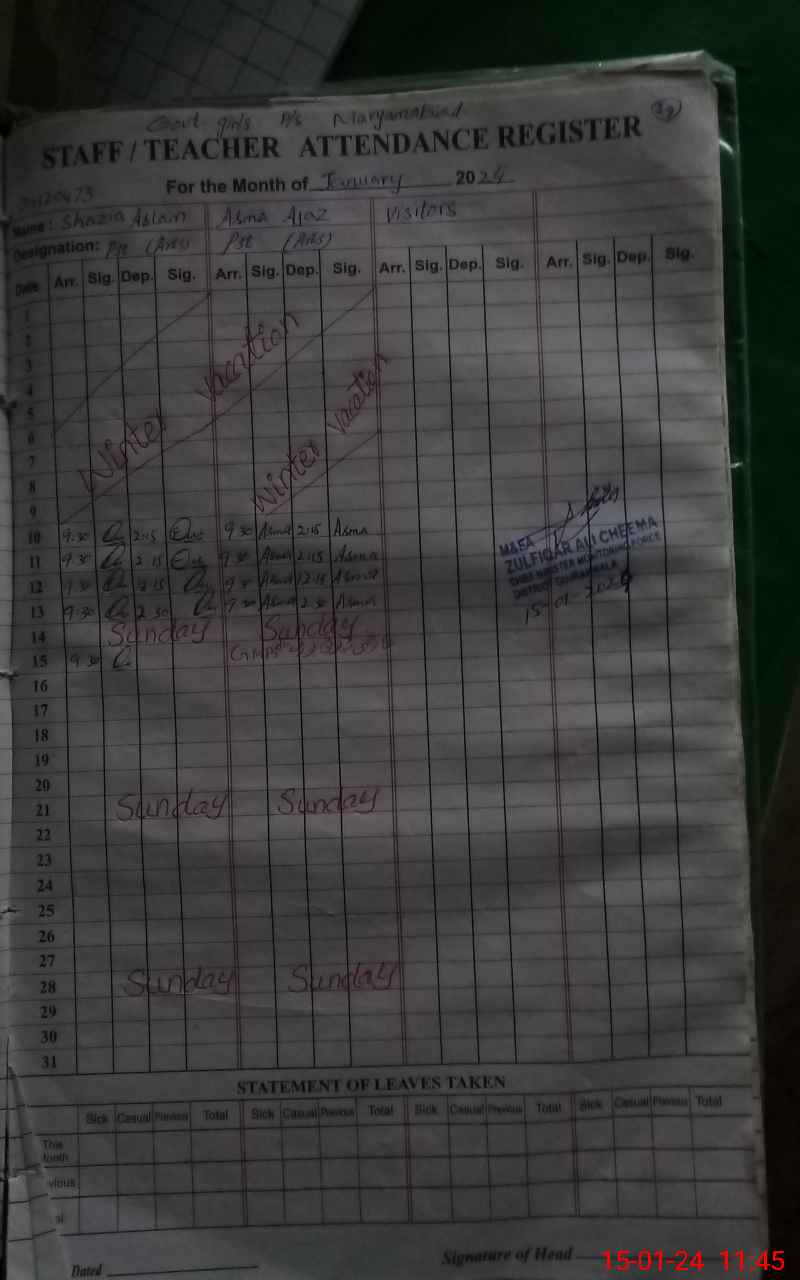 Govt. girls P/s Maryamabad
STAFF / TEACHER ATTENDANCE REGISTER
For the Month of January 2024
Name: Shazia Aslam Asma Ajaz Visitors
Designation: Pst (Arts) Pst (Arts)
Date Arr. Sig. Dep. Sig. Arr. Sig. Dep. Sig. Arr. Sig. Dep. Sig. Arr. Sig. Dep. Sig.
1
2
3
4
5
6
7
8
9
Winter vacation
Winter vacation
10 9:30 2:15 9:30 Asma 2:15 Asma
11 9:30 2:15 9:30 Asma 2:15 Asma
12 9:30 12:15 9:30 Asma 12:15 Asma
13 9:30 2:30 9:30 Asma 2:30 Asma
14 Sunday Sunday
15 9:30
M&EA
ZULFIQAR ALI CHEEMA
CHIEF MINISTER MONITORING FORCE
DISTRICT GUJRANWALA
15-01-2024
16
17
18
19
20
21 Sunday Sunday
22
23
24
25
26
27
28 Sunday Sunday
29
30
31
STATEMENT OF LEAVES TAKEN
Sick Casual Previous Total Sick Casual Previous Total Sick Casual Previous Total Sick Casual Previous Total
This
Month
vious
al
Dated
Signature of Head
15-01-24 11:45